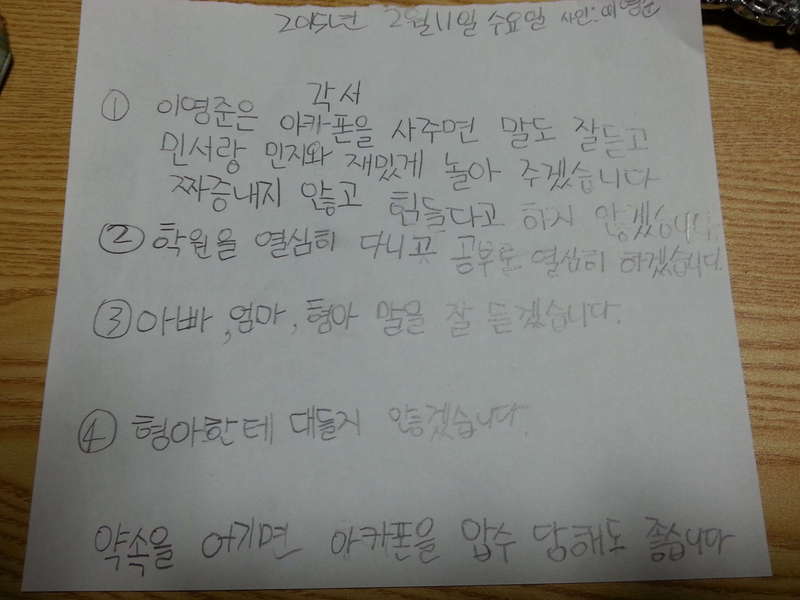 2015년 2월 11일 수요일 사인: 이영준
각서
① 이영준은 아카폰을 사주면 말도 잘듣고
민서랑 민지와 재밌게 놀아 주겠습니다
짜증내지 않고 힘들다고 하지 않겠습니다
② 학원을 열심히 다니고 공부를 열심히 하겠습니다.
③ 아빠, 엄마, 형아 말을 잘 듣겠습니다.
④ 형아한테 대들지 않겠습니다.
약속을 어기면 아카폰을 압수 당해도 좋습니다